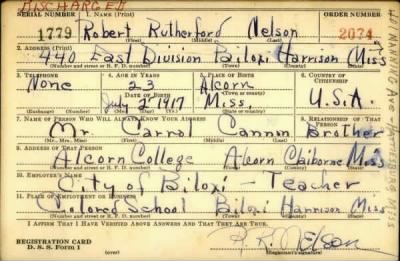 DISCHARGED
SERIAL NUMBER 1. NAME (Print) ORDER NUMBER
1779 Robert Rutherford Nelson 2074
(First) (Middle) (Last)
2. ADDRESS (Print)
440 East Division Biloxi Harrison Miss
(Number and street or R. F. D. number) (Town) (County) (State)
3. TELEPHONE 4. AGE IN YEARS 5. PLACE OF BIRTH 6. COUNTRY OF CITIZENSHIP
None 23 Alcorn
DATE OF BIRTH (Town or county)
July 2 1917 Miss. U.S.A.
(Mo.) (Day) (Yr.) (State or country)
7. NAME OF PERSON WHO WILL ALWAYS KNOW YOUR ADDRESS 8. RELATIONSHIP OF THAT PERSON
Mr. Carrol Cannon Brother
(Mr., Mrs., Miss) (First) (Middle) (Last)
9. ADDRESS OF THAT PERSON
Alcorn College Alcorn Claiborne Miss
(Number and street or R. F. D. number) (Town) (County) (State)
10. EMPLOYER'S NAME
City of Biloxi Teacher
11. PLACE OF EMPLOYMENT OR BUSINESS
Colored School Biloxi Harrison Miss
(Number and street or R. F. D. number) (Town) (County) (State)
I AFFIRM THAT I HAVE VERIFIED ABOVE ANSWERS AND THAT THEY ARE TRUE.
REGISTRATION CARD
D. S. S. FORM 1 (over) R. R. Nelson
(Registrant's signature)
Ave Hattiesburg Miss